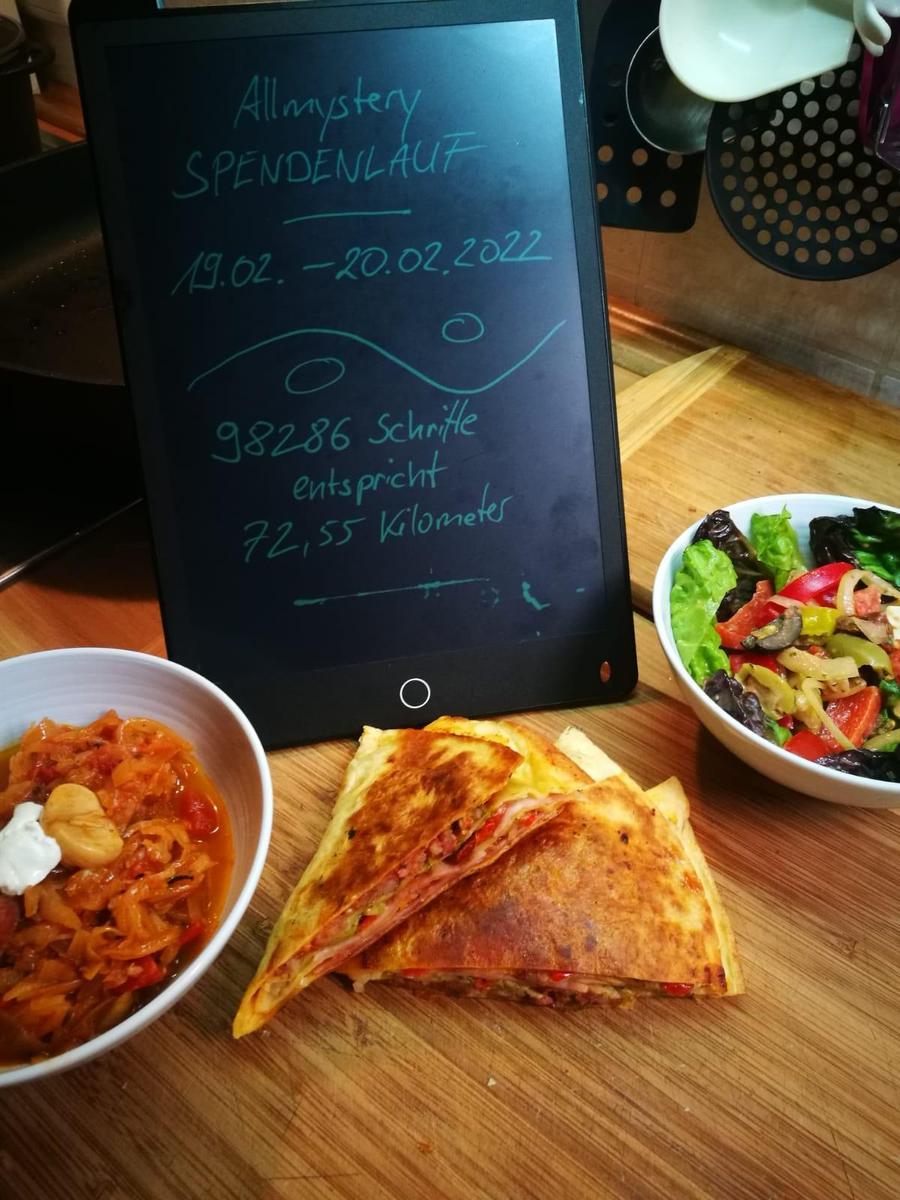 Allmystery
SPENDENLAUF
19.02. - 20.02.2022
98286 Schritte
entspricht
72,55 Kilometer